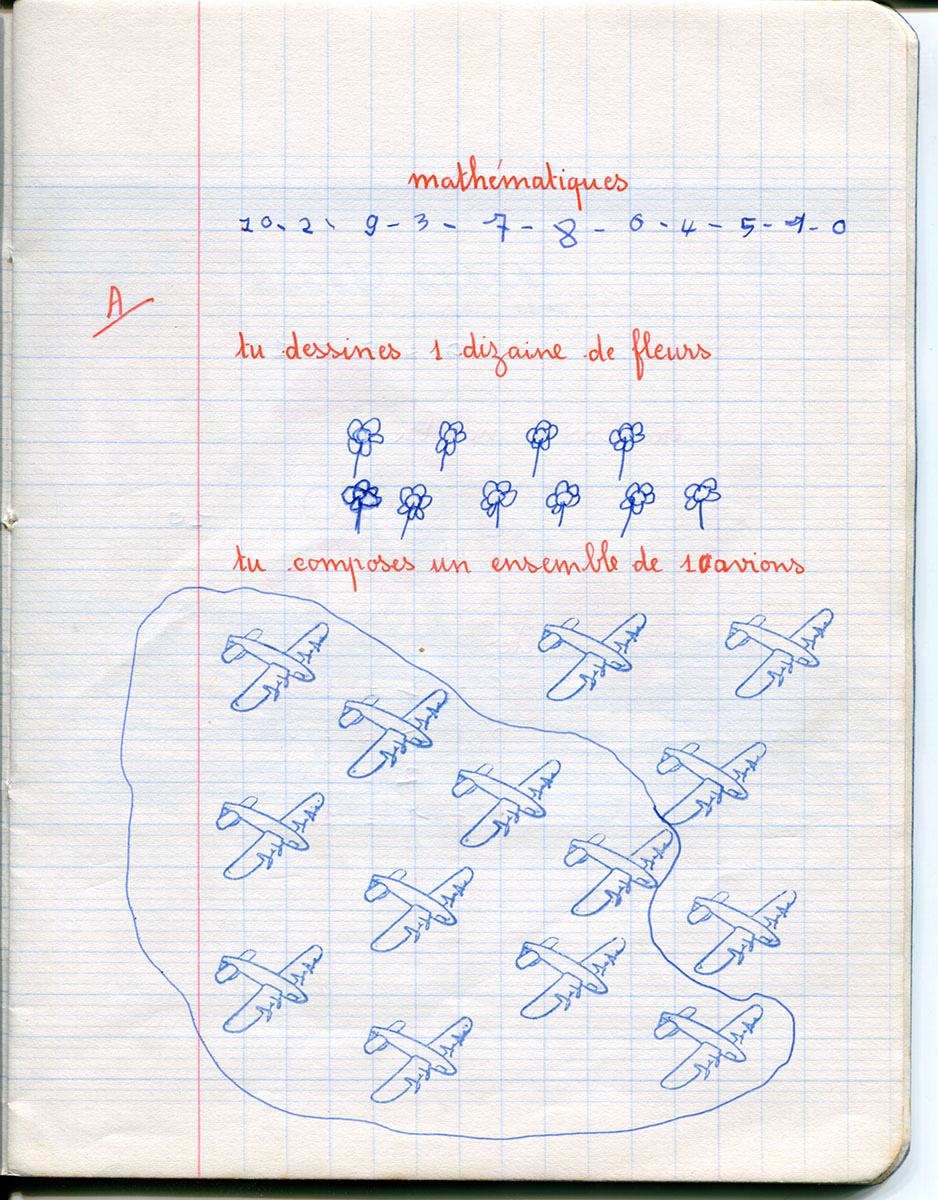 mathématiques
10 - 2 - 9 - 3 - 7 - 8 - 6 - 4 - 5 - 1 - 0
A
tu dessines 1 dizaine de fleurs
tu composes un ensemble de 10 avions